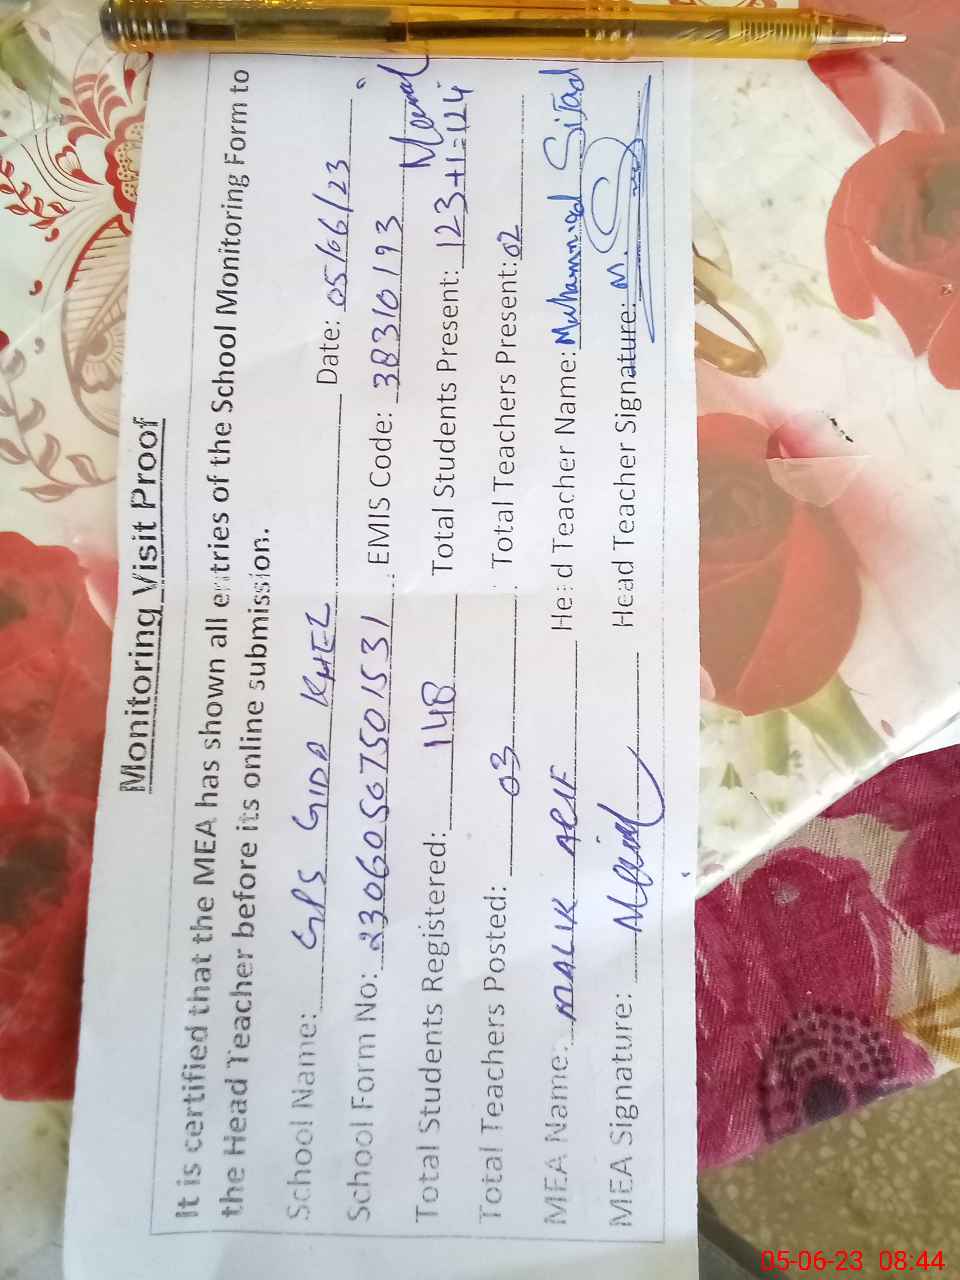 Monitoring Visit Proof
It is certified that the MEA has shown all entries of the School Monitoring Form to
the Head Teacher before its online submission.
School Name: GPS GIDA KHEL Date: 05/06/23
School Form No: 23060567501531 EMIS Code: 38310193
Total Students Registered: 148 Total Students Present: 123+1=124
Total Teachers Posted: 03 Total Teachers Present: 02
MEA Name: MALIK ARIF Head Teacher Name: Muhammad
MEA Signature: Head Teacher Signature:
05-06-23 08:44